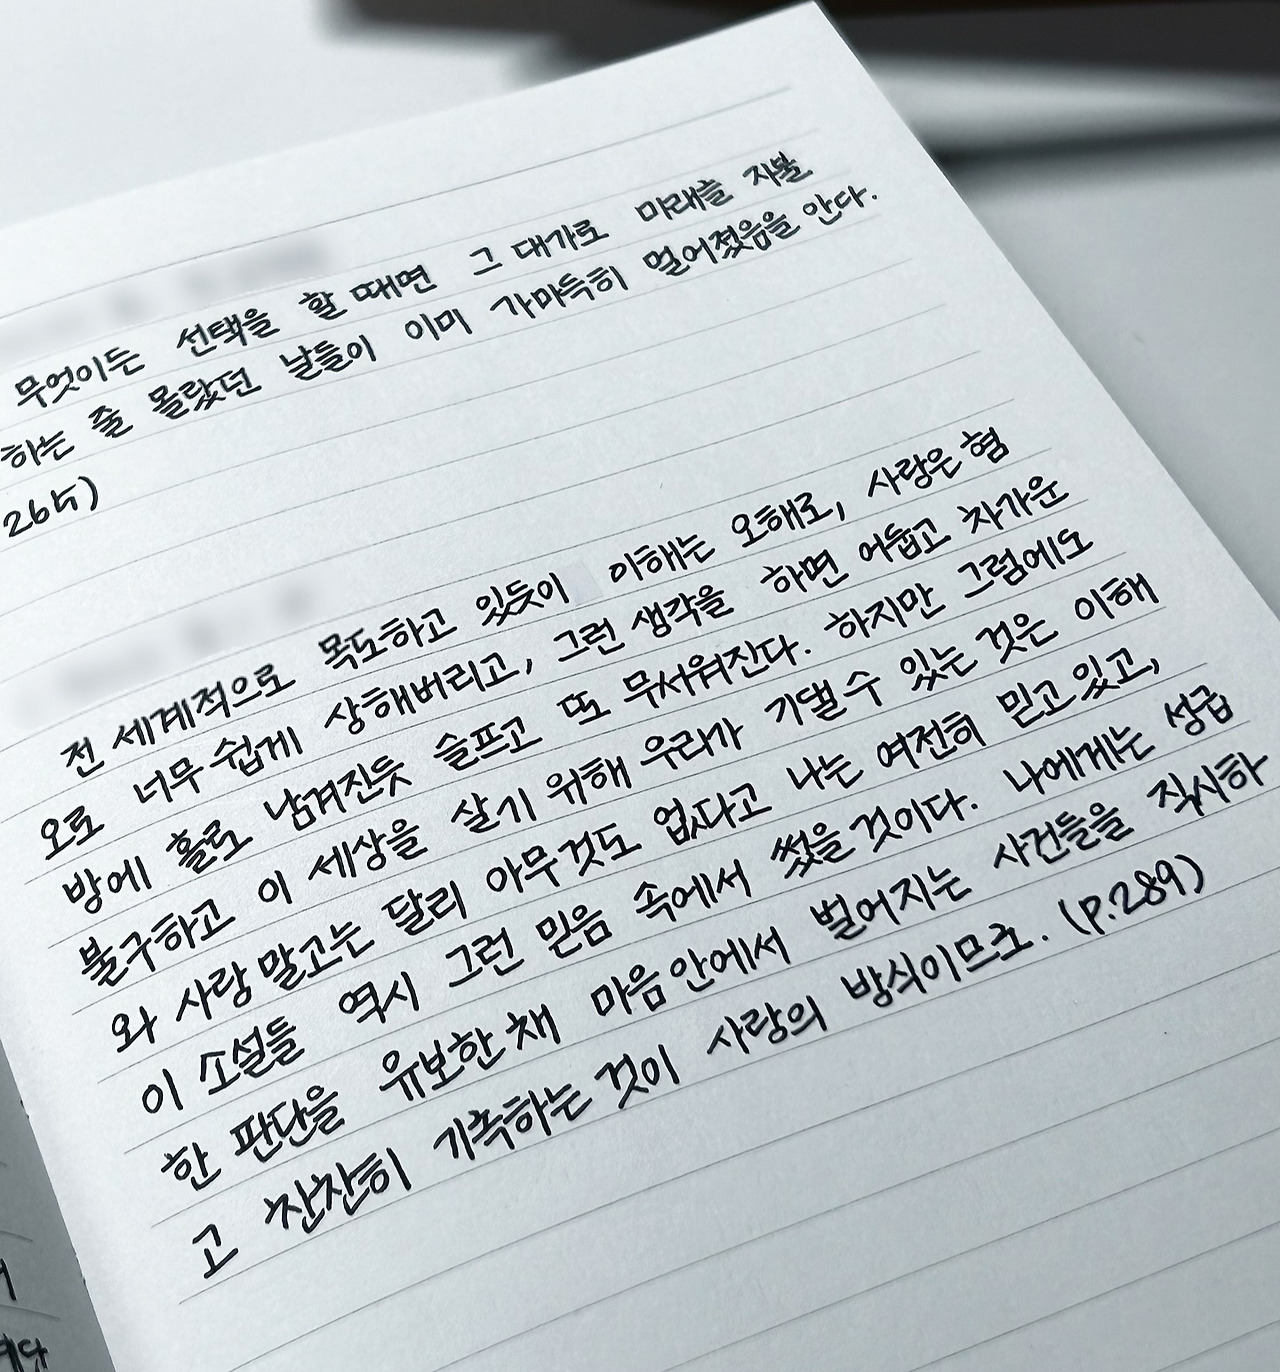 무엇이든 선택을 할 때면 그 대가로 미래를 지불
하는 줄 몰랐던 날들이 이미 가마득히 멀어졌음을 안다.
265)
전 세계적으로 목도하고 있듯이 이해는 오해로, 사랑은 혐
오로 너무 쉽게 상해버리고, 그런 생각을 하면 어둡고 차가운
방에 홀로 남겨진듯 슬프고 또 무서워진다. 하지만 그럼에도
불구하고 이 세상을 살기 위해 우리가 기댈 수 있는 것은 이해
와 사랑 말고는 달리 아무것도 없다고 나는 여전히 믿고 있고,
이 소설들 역시 그런 믿음 속에서 썼을 것이다. 나에게는 성급
한 판단을 유보한 채 마음 안에서 벌어지는 사건들을 직시하
고 찬찬히 기록하는 것이 사랑의 방식이므로. (p.289)